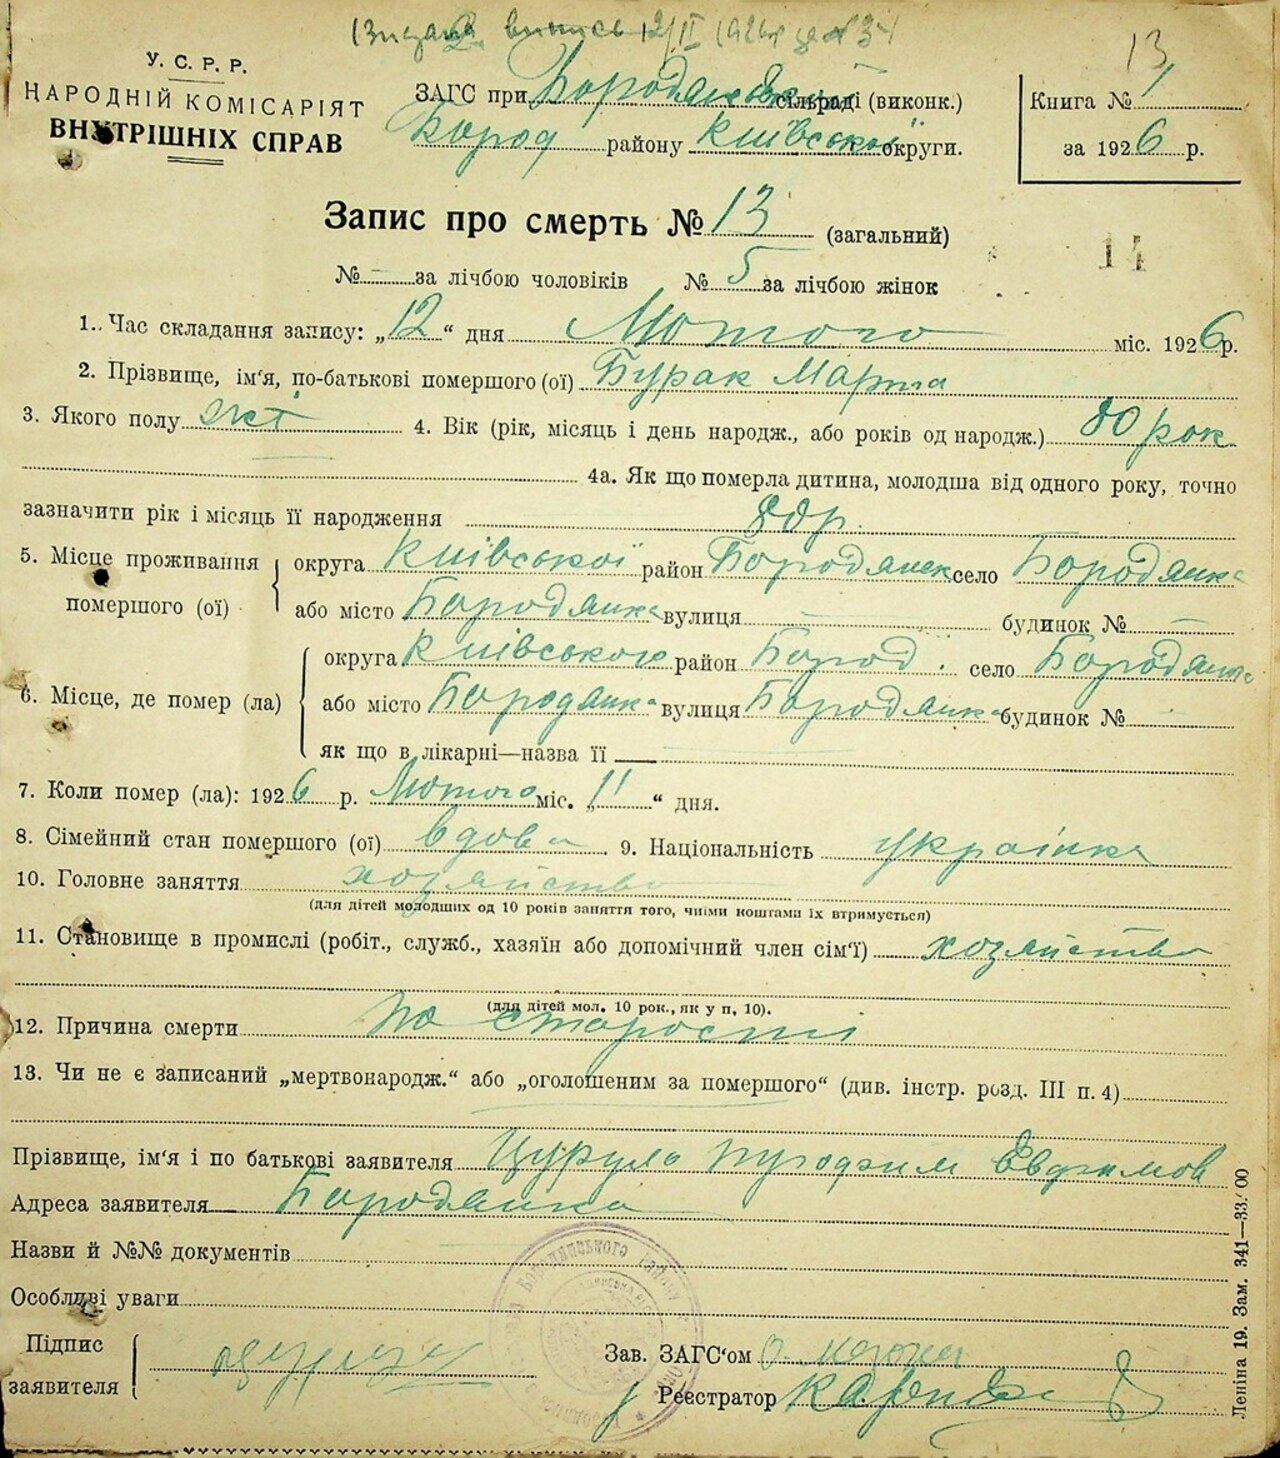 13
У. С. Р. Р.
НАРОДНІЙ КОМІСАРІЯТ
ВНУТРІШНІХ СПРАВ
ЗАГС при Бородянській сільраді (виконк.)
Бород району Київської округи.
Книга № 1
за 1926 р.
Запис про смерть № 13 (загальний)
14
№ – за лічбою чоловіків № 5 за лічбою жінок
1. Час складання запису: „12“ дня Лютого міс. 1926 р.
2. Прізвище, ім'я, по-батькові помершого (ої) Бурак Марта
3. Якого полу жкі 4. Вік (рік, місяць і день народж., або років од народж.) 80 рок
4а. Як що померла дитина, молодша від одного року, точно
зазначити рік і місяць її народження 80р.
5. Місце проживання помершого (ої) округа Київської район Бородянск село Бородянка
або місто Бородянка вулиця — будинок № —
6. Місце, де помер (ла) округа Київською район Бород. село Бородянка
або місто Бородянка вулиця Бородянка будинок №
як що в лікарні—назва її
7. Коли помер (ла): 1926 р. Лютого міс. „11“ дня.
8. Сімейний стан помершого (ої) вдова 9. Національність українка
10. Головне заняття хозяйство
(для дітей молодших од 10 років заняття того, чиїми коштами їх втримується)
11. Становище в промислі (робіт., служб., хазяїн або допомічний член сім'ї) хозяйство
(для дітей мол. 10 рок., як у п. 10).
12. Причина смерти по старості
13. Чи не є записаний „мертвонародж.“ або „оголошеним за помершого“ (див. інстр. розд. III п. 4)
Прізвище, ім'я і по батькові заявителя Цурула Евдфимов
Адреса заявителя Бородянка
Назви й №№ документів
Особливі уваги
Підпис заявителя
Зав. ЗАГС'ом
Реєстратор
Леніна 19. Зам. 341—33.000